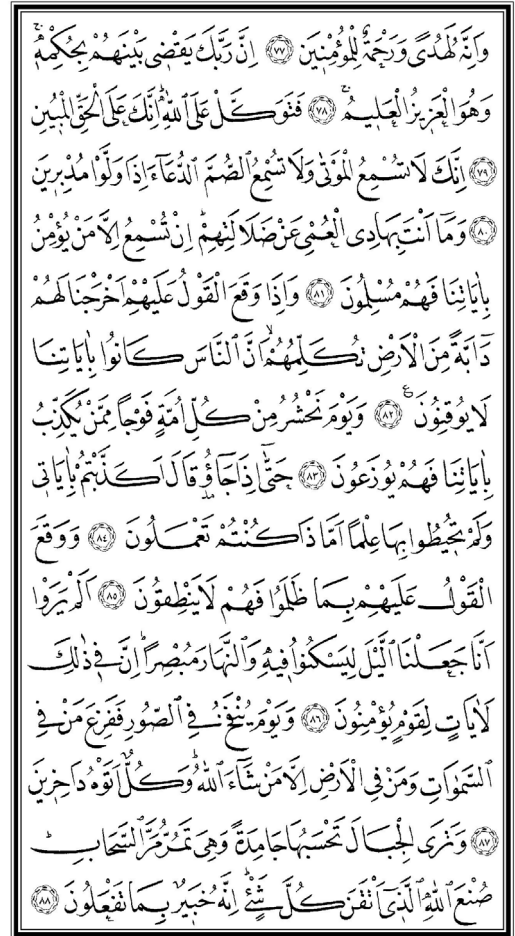 وَاِنَّهُ لَهُدًى وَرَحْمَةٌ لِلْمُؤْمِنٖينَ ﴿٧٧﴾ اِنَّ رَبَّكَ يَقْضٖى بَيْنَهُمْ بِحُكْمِهٖۚ
وَهُوَ الْعَزٖيزُ الْعَلٖيمُۚ ﴿٧٨﴾ فَتَوَكَّلْ عَلَى اللّٰهِۜ اِنَّكَ عَلَى الْحَقِّ الْمُبٖينِ
﴿٧٩﴾ اِنَّكَ لَا تُسْمِعُ الْمَوْتٰى وَلَا تُسْمِعُ الصُّمَّ الدُّعَٓاءَ اِذَا وَلَّوْا مُدْبِرٖينَ
﴿٨٠﴾ وَمَٓا اَنْتَ بِهَادِى الْعُمْىِ عَنْ ضَلَالَتِهِمْۜ اِنْ تُسْمِعُ اِلَّا مَنْ يُؤْمِنُ
بِاٰيَاتِنَا فَهُمْ مُسْلِمُونَ ﴿٨١﴾ وَاِذَا وَقَعَ الْقَوْلُ عَلَيْهِمْ اَخْرَجْنَا لَهُمْ
دَٓابَّةً مِنَ الْاَرْضِ تُكَلِّمُهُمْۙ اَنَّ النَّاسَ كَانُوا بِاٰيَاتِنَا
لَا يُوقِنُونَ ﴿٨٢﴾ وَيَوْمَ نَحْشُرُ مِنْ كُلِّ اُمَّةٍ فَوْجاً مِمَّنْ يُكَذِّبُ
بِاٰيَاتِنَا فَهُمْ يُوزَعُونَ ﴿٨٣﴾ حَتّٰٓى اِذَا جَٓاؤُ۫ قَالَ اَكَذَّبْتُمْ بِاٰيَاتٖى
وَلَمْ تُحٖيطُوا بِهَا عِلْماً اَمَّا ذَا كُنْتُمْ تَعْمَلُونَ ﴿٨٤﴾ وَوَقَعَ
الْقَوْلُ عَلَيْهِمْ بِمَا ظَلَمُوا فَهُمْ لَا يَنْطِقُونَ ﴿٨٥﴾ اَلَمْ يَرَوْا
اَنَّا جَعَلْنَا الَّيْلَ لِيَسْكُنُوا فٖيهِ وَالنَّهَارَ مُبْصِراًۜ اِنَّ فٖى ذٰلِكَ
لَاٰيَاتٍ لِقَوْمٍ يُؤْمِنُونَ ﴿٨٦﴾ وَيَوْمَ يُنْفَخُ فِى الصُّورِ فَفَزِعَ مَنْ فِى
السَّمٰوَاتِ وَمَنْ فِى الْاَرْضِ اِلَّا مَنْ شَٓاءَ اللّٰهُۜ وَكُلٌّ اَتَوْهُ دَاخِرٖينَ
﴿٨٧﴾ وَتَرَى الْجِبَالَ تَحْسَبُهَا جَامِدَةً وَهِىَ تَمُرُّ مَرَّ السَّحَابِۜ
صُنْعَ اللّٰهِ الَّذٖٓى اَتْقَنَ كُلَّ شَىْءٍۜ اِنَّهُ خَبٖيرٌ بِمَا تَفْعَلُونَ ﴿٨٨﴾